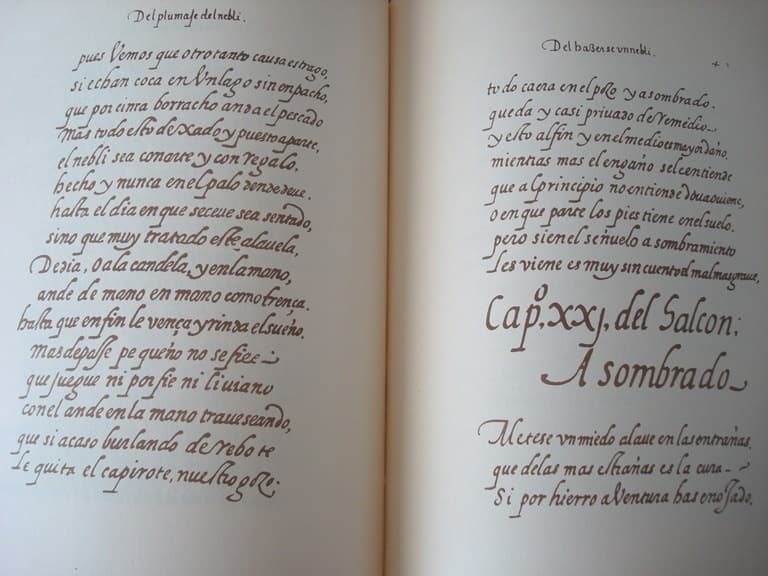 Del plumaje del nebli.
pues Vemos que otro tanto causa estrago,
si echan coca en Vn lago sin enpacho,
que por cima borracho anda el pescado
Mas todo esto dexado y puesto aparte,
el nebli sea con arte y con regalo,
hecho y nunca en el palo dende deve.
hasta el dia en que se ceve sea sentado,
sino que muy tratado este, a la vela,
De dia, O a la candela, y en la mano,
ande de mano en mano como trença.
hasta que en fin le vença y rinda el sueño.
Mas de paje pequeño no se fiee
que juegue ni porfie ni liviano
con el ande en la mano traveseando,
que si acaso burlando de rebote
Le quita el capirote, nuestro gozo.
Del haZerse vn nebli.
todo caera en el pozo y asombrado.
queda y casi privado de remedio
y esto al fin y en el medio es mayor daño,
mientras mas el engaño se le entiende
que al principio no entiende do va o viene,
o en que parte los pies tiene en el suelo.
pero si en el señuelo asombramiento
Les viene es muy sin cuento el mal mas grave,
Capº. xxj, del Halcon:
Asombrado
Metese vn miedo al ave en las entrañas.
que de las mas estrañas es la cura
Si por hierro aVentura has enojado.